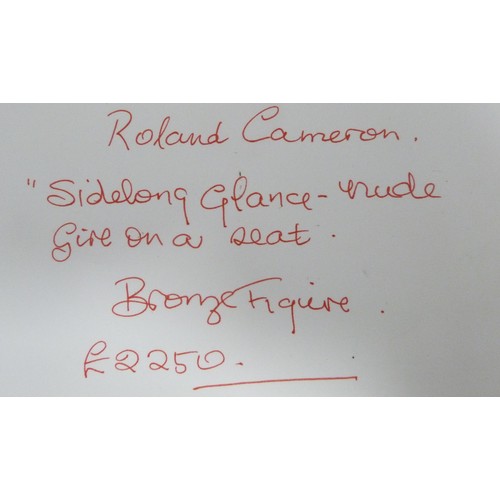 Roland Cameron.
"Sidelong Glance - nude
Girl on a seat.
Bronze Figure.
£2250.